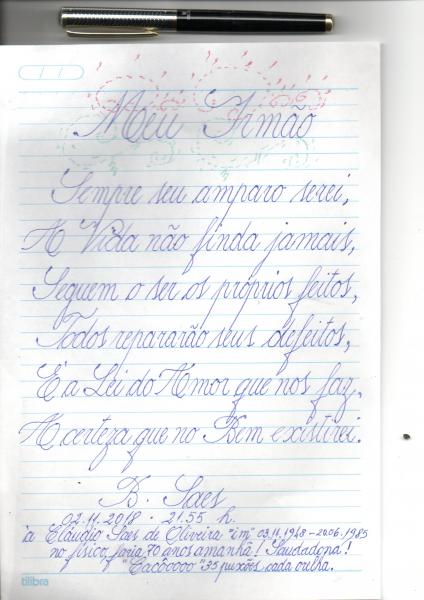 Meu Irmão
Sempre seu amparo serei,
A Vida não finda jamais,
Seguem o ser os próprios feitos,
Todos repararão seus defeitos,
É a Lei do Amor que nos faz,
A certeza que no Bem existirei.
B. Saes
02.11.2018 - 21:55 h.
à Cláudio Saes de Oliveira "im" 03.11.1948 - 20.06.1985
no físico, faria 70 anos amanhã! Saudadona!
"Cacôoooo" 35 puxões cada orelha.
tilibra